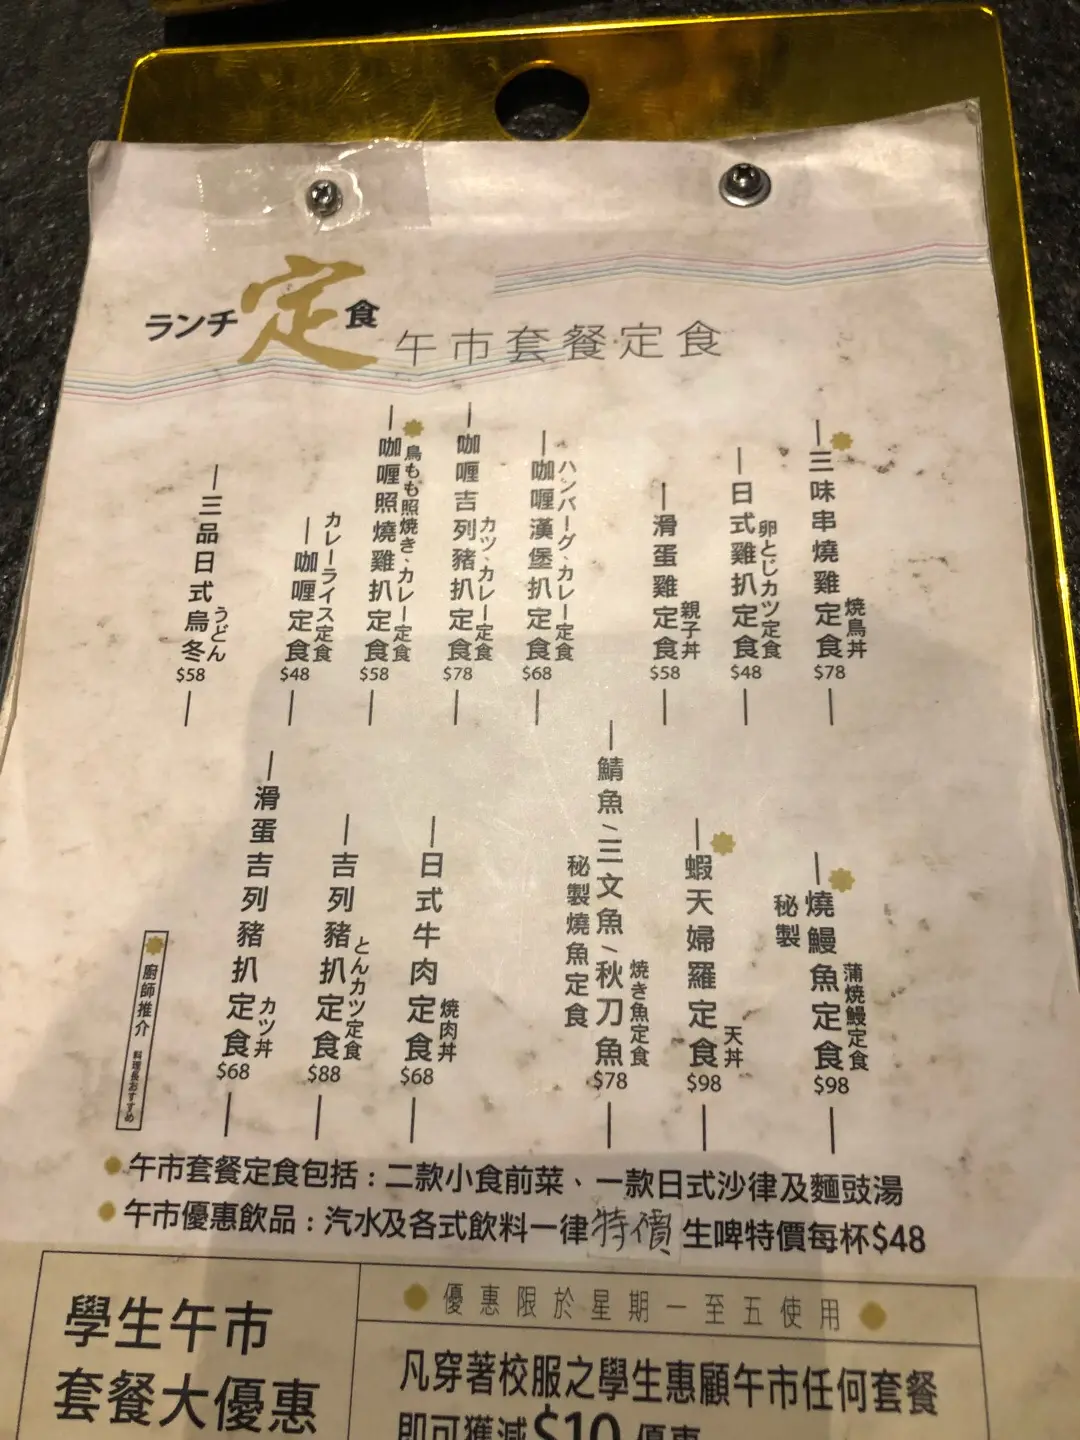 ランチ定食 午市套餐定食
三味串燒雞定食
焼鳥丼
$78
日式雞扒定食
卵とじカツ定食
$48
滑蛋雞定食
親子丼
$58
咖喱漢堡扒定食
ハンバーグ、カレー定食
$68
咖喱吉列豬扒定食
カツ、カレー定食
$78
咖喱照燒雞扒定食
鳥もも照焼き、カレー定食
$58
咖喱定食
カレーライス定食
$48
三品日式烏冬
うどん
$58
秘製
燒鰻魚定食
蒲焼鰻定食
$98
蝦天婦羅定食
天丼
$98
鯖魚、三文魚、秋刀魚
秘製燒魚定食
焼き魚定食
$78
日式牛肉定食
焼肉丼
$68
吉列豬扒定食
とんカツ定食
$88
滑蛋吉列豬扒定食
カツ丼
$68
廚師推介 料理長おすすめ
午市套餐定食包括：二款小食前菜、一款日式沙律及麵豉湯
午市優惠飲品：汽水及各式飲料一律特價 生啤特價每杯$48
學生午市
套餐大優惠
優惠限於星期一至五使用
凡穿著校服之學生惠顧午市任何套餐
即可獲減$10優惠